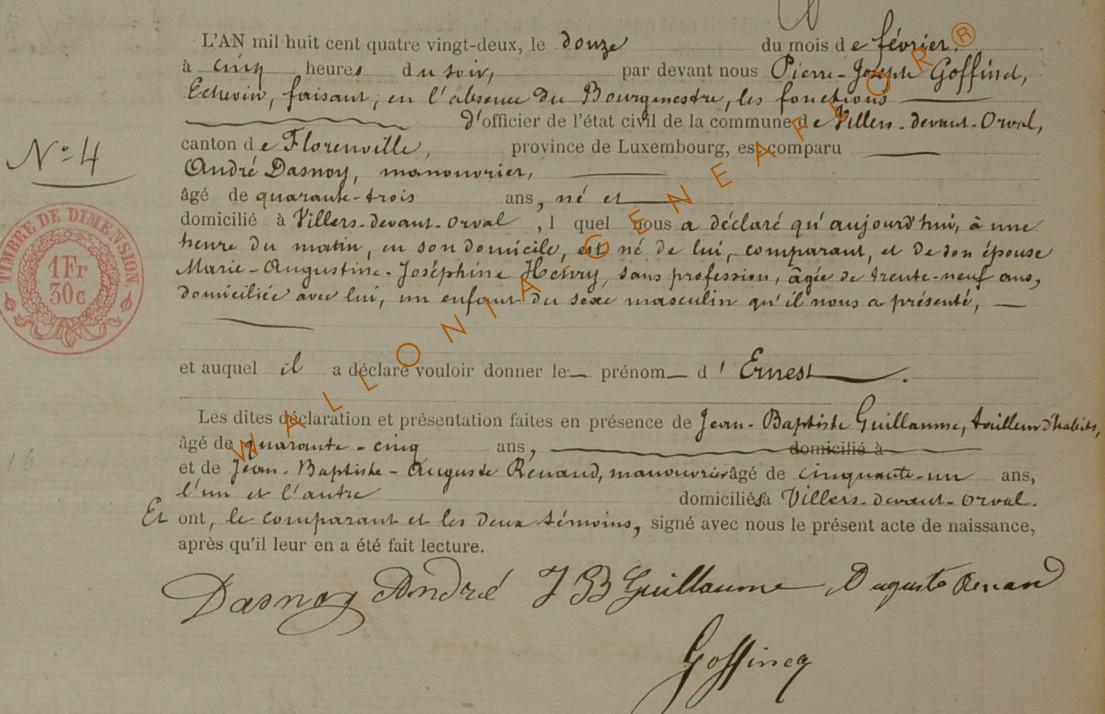 L'AN mil huit cent quatre vingt-deux, le douze du mois de février,
à cinq heures du soir, par devant nous Pierre-Joseph Goffinet,
Echevin, faisant, en l'absence du Bourgmestre, les fonctions
d'officier de l'état civil de la commune de Villers-devant-Orval,
N° 4
canton de Florenville, province de Luxembourg, est comparu
André Dasnoy, manouvrier,
âgé de quarante-trois ans, né et
domicilié à Villers-devant-Orval, lequel nous a déclaré qu'aujourd'hui, à une
heure du matin, en son domicile, est né de lui, comparant, et de son épouse
Marie-Augustine-Joséphine Henry, sans profession, âgée de trente-neuf ans,
domiciliée avec lui, un enfant du sexe masculin qu'il nous a présenté,
TIMBRE DE DIMENSION
1Fr
30c
et auquel il a déclaré vouloir donner le prénom d'Ernest.
Les dites déclaration et présentation faites en présence de Jean-Baptiste Guillaume, tailleur d'habits,
âgé de quarante-cinq ans, domicilié à
et de Jean-Baptiste-Auguste Renaud, manouvrier âgé de cinquante-un ans,
16
l'un et l'autre domiciliés à Villers-devant-Orval.
Et ont, le comparant et les deux témoins, signé avec nous le présent acte de naissance,
après qu'il leur en a été fait lecture.
Dasnoy André J B Guillaume Auguste Renaud
Goffinet
WALLONIA GENEAFLOR®